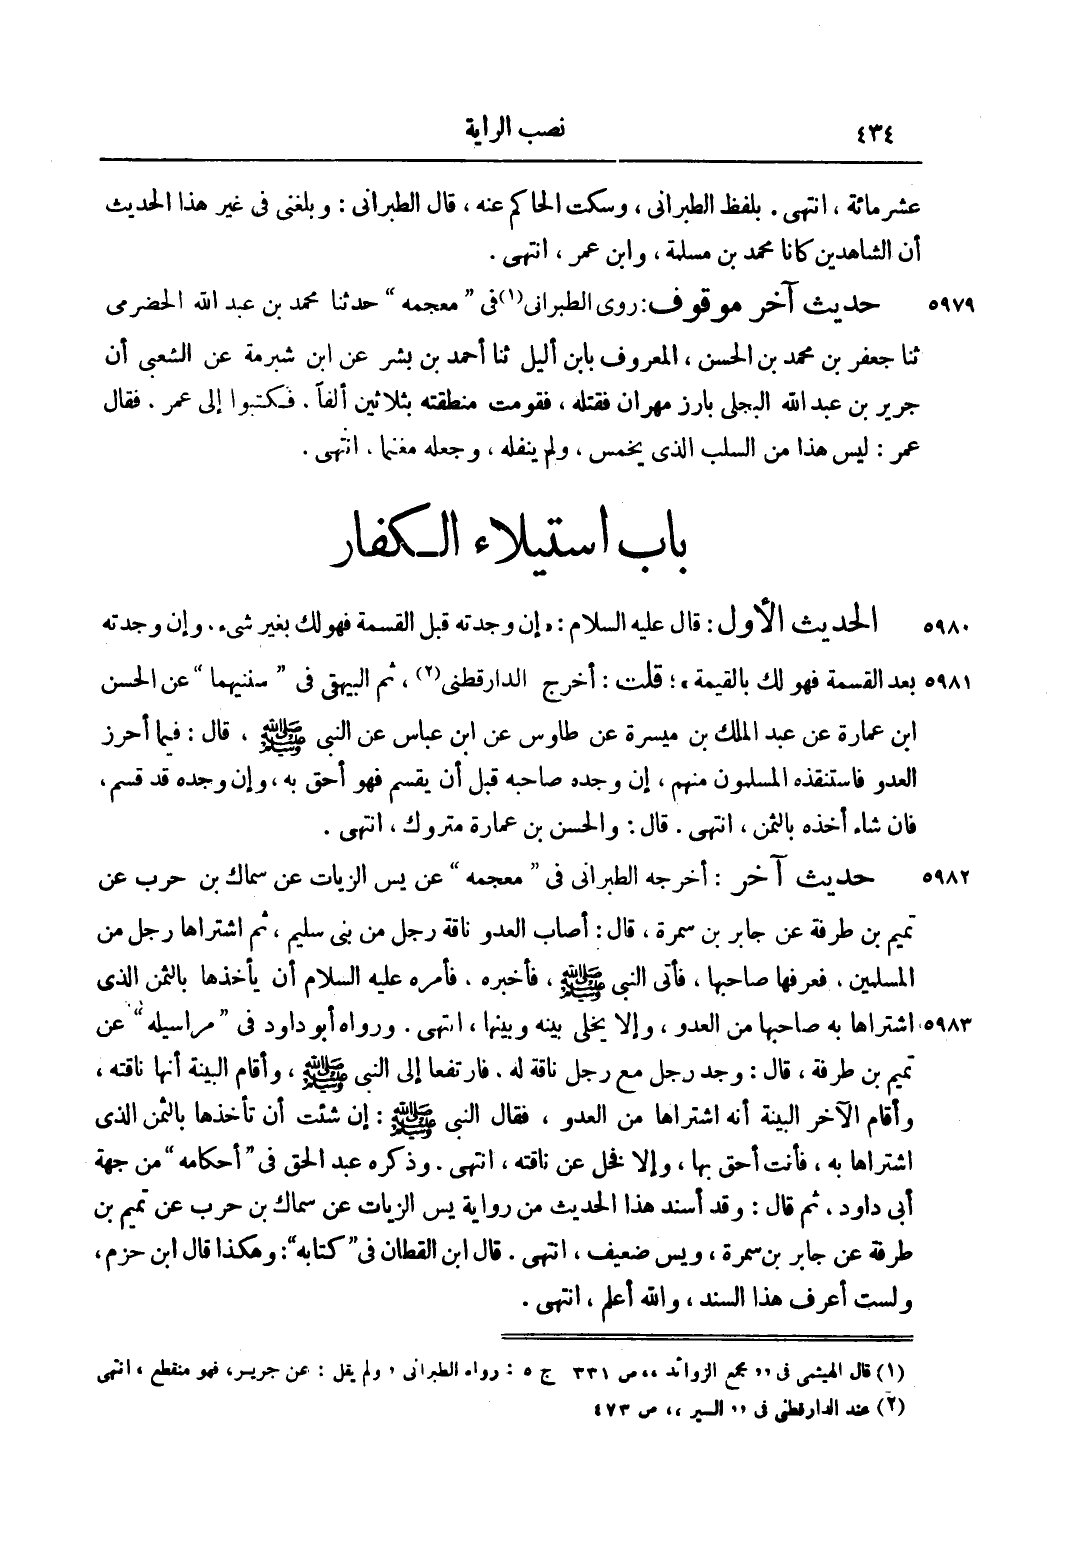 ٤٣٤ نصب الراية
عشر مائة ، انتهى . بلفظ الطبرانى ، وسكت الحاكم عنه ، قال الطبرانى : وبلغنى فى غير هذا الحديث
أن الشاهدين كانا محمد بن مسلمة ، وابن عمر ، انتهى .
٥٩٧٩ حديث آخر موقوف : روى الطبرانى (١) فى " معجمه " حدثنا محمد بن عبد الله الحضرمى
ثنا جعفر بن محمد بن الحسن ، المعروف بابن أليل ثنا أحمد بن بشر عن ابن شبرمة عن الشعبى أن
جرير بن عبد الله البجلى بارز مهران فقتله ، فقومت منطقته بثلاثين ألفاً . فكتبوا إلى عمر . فقال
عمر : ليس هذا من السلب الذى يخمس ، ولم ينفله ، وجعله مغنما . انتهى .
باب استيلاء الكفار
٥٩٨٠ الحديث الأول : قال عليه السلام : « إن وجدته قبل القسمة فهو لك بغير شىء . وإن وجدته
٥٩٨١ بعد القسمة فهو لك بالقيمة » ؛ قلت : أخرج الدارقطنى (٢) ، ثم البيهقى فى " سننيهما " عن الحسن
ابن عمارة عن عبد الملك بن ميسرة عن طاوس عن ابن عباس عن النبى ﷺ ، قال : فيما أحرز
العدو فاستنقذه المسلمون منهم ، إن وجده صاحبه قبل أن يقسم فهو أحق به ، وإن وجده قد قسم ،
فان شاء أخذه بالثمن ، انتهى . قال : والحسن بن عمارة متروك ، انتهى .
٥٩٨٢ حديث آخر : أخرجه الطبرانى فى " معجمه " عن يس الزيات عن سماك بن حرب عن
تميم بن طرفة عن جابر بن سمرة ، قال : أصاب العدو ناقة رجل من بنى سليم ، ثم اشتراها رجل من
المسلمين ، فعرفها صاحبها ، فأتى النبى ﷺ ، فأخبره . فأمره عليه السلام أن يأخذها بالثمن الذى
٥٩٨٣ اشتراها به صاحبها من العدو ، وإلا يخلى بينه وبينها ، انتهى . ورواه أبو داود فى " مراسيله " عن
تميم بن طرفة ، قال : وجد رجل مع رجل ناقة له . فارتفعا إلى النبى ﷺ ، وأقام البينة أنها ناقته ،
وأقام الآخر البينة أنه اشتراها من العدو ، فقال النبى ﷺ : إن شئت أن تأخذها بالثمن الذى
اشتراها به ، فأنت أحق بها ، وإلا فخل عن ناقته ، انتهى . وذكره عبد الحق فى " أحكامه " من جهة
أبى داود ، ثم قال : وقد أسند هذا الحديث من رواية يس الزيات عن سماك بن حرب عن تميم بن
طرفة عن جابر بن سمرة ، ويس ضعيف ، انتهى . قال ابن القطان فى " كتابه " : وهكذا قال ابن حزم ،
ولست أعرف هذا السند ، والله أعلم ، انتهى .
(١) قال الهيثمى فى ,, مجمع الزوائد ،، ص ٣٣١ ج ٥ : رواه الطبرانى ، ولم يقل : عن جرير ، فهو منقطع ، انتهى
(٢) عند الدارقطنى فى ,, السير ،، ص ٤٧٣